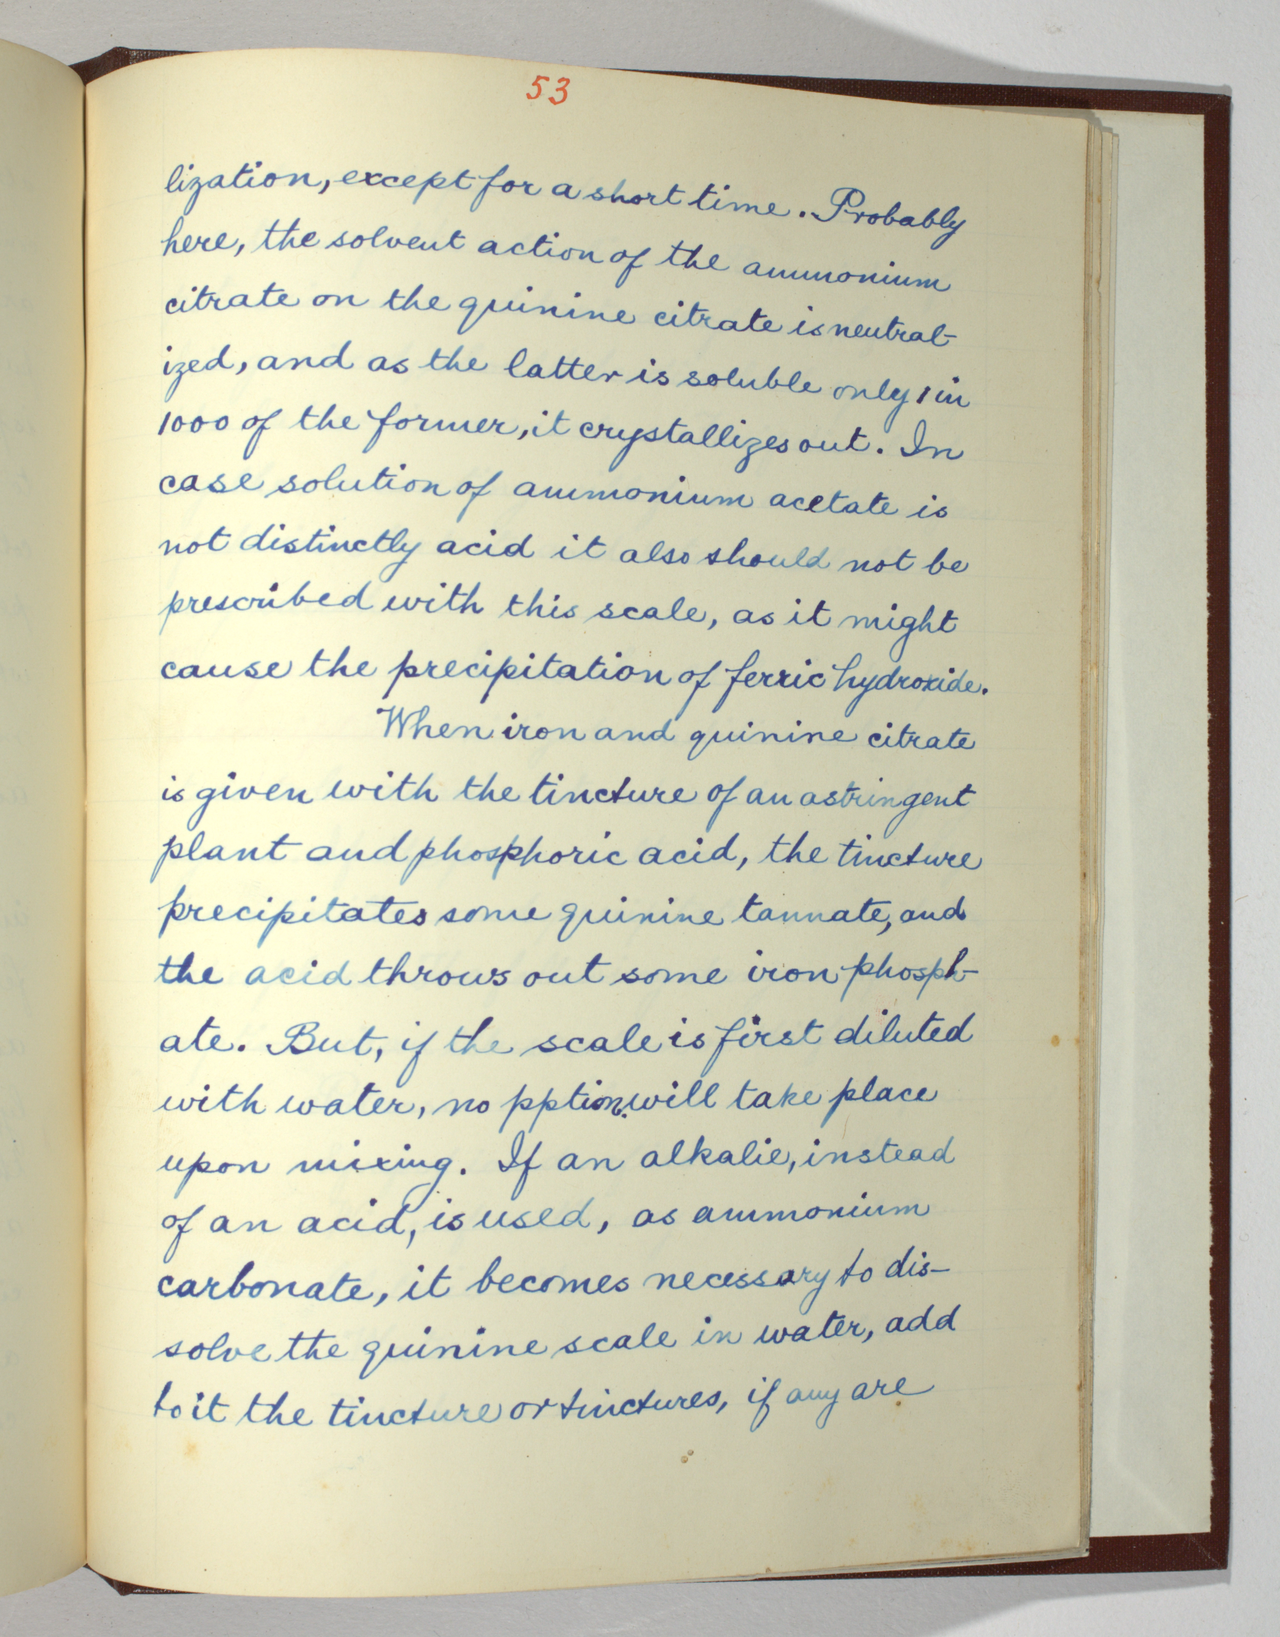 53
lization, except for a short time. Probably
here, the solvent action of the ammonium
citrate on the quinine citrate is neutral-
ized, and as the latter is soluble only 1 in
1000 of the former, it crystallizes out. In
case solution of ammonium acetate is
not distinctly acid it also should not be
prescribed with this scale, as it might
cause the precipitation of ferric hydroxide.
When iron and quinine citrate
is given with the tincture of an astringent
plant and phosphoric acid, the tincture
precipitates some quinine tannate, and
the acid throws out some iron phosph-
ate. But, if the scale is first diluted
with water, no pption. will take place
upon mixing. If an alkalie, instead
of an acid, is used, as ammonium
carbonate, it becomes necessary to dis-
solve the quinine scale in water, add
to it the tincture or tinctures, if any are